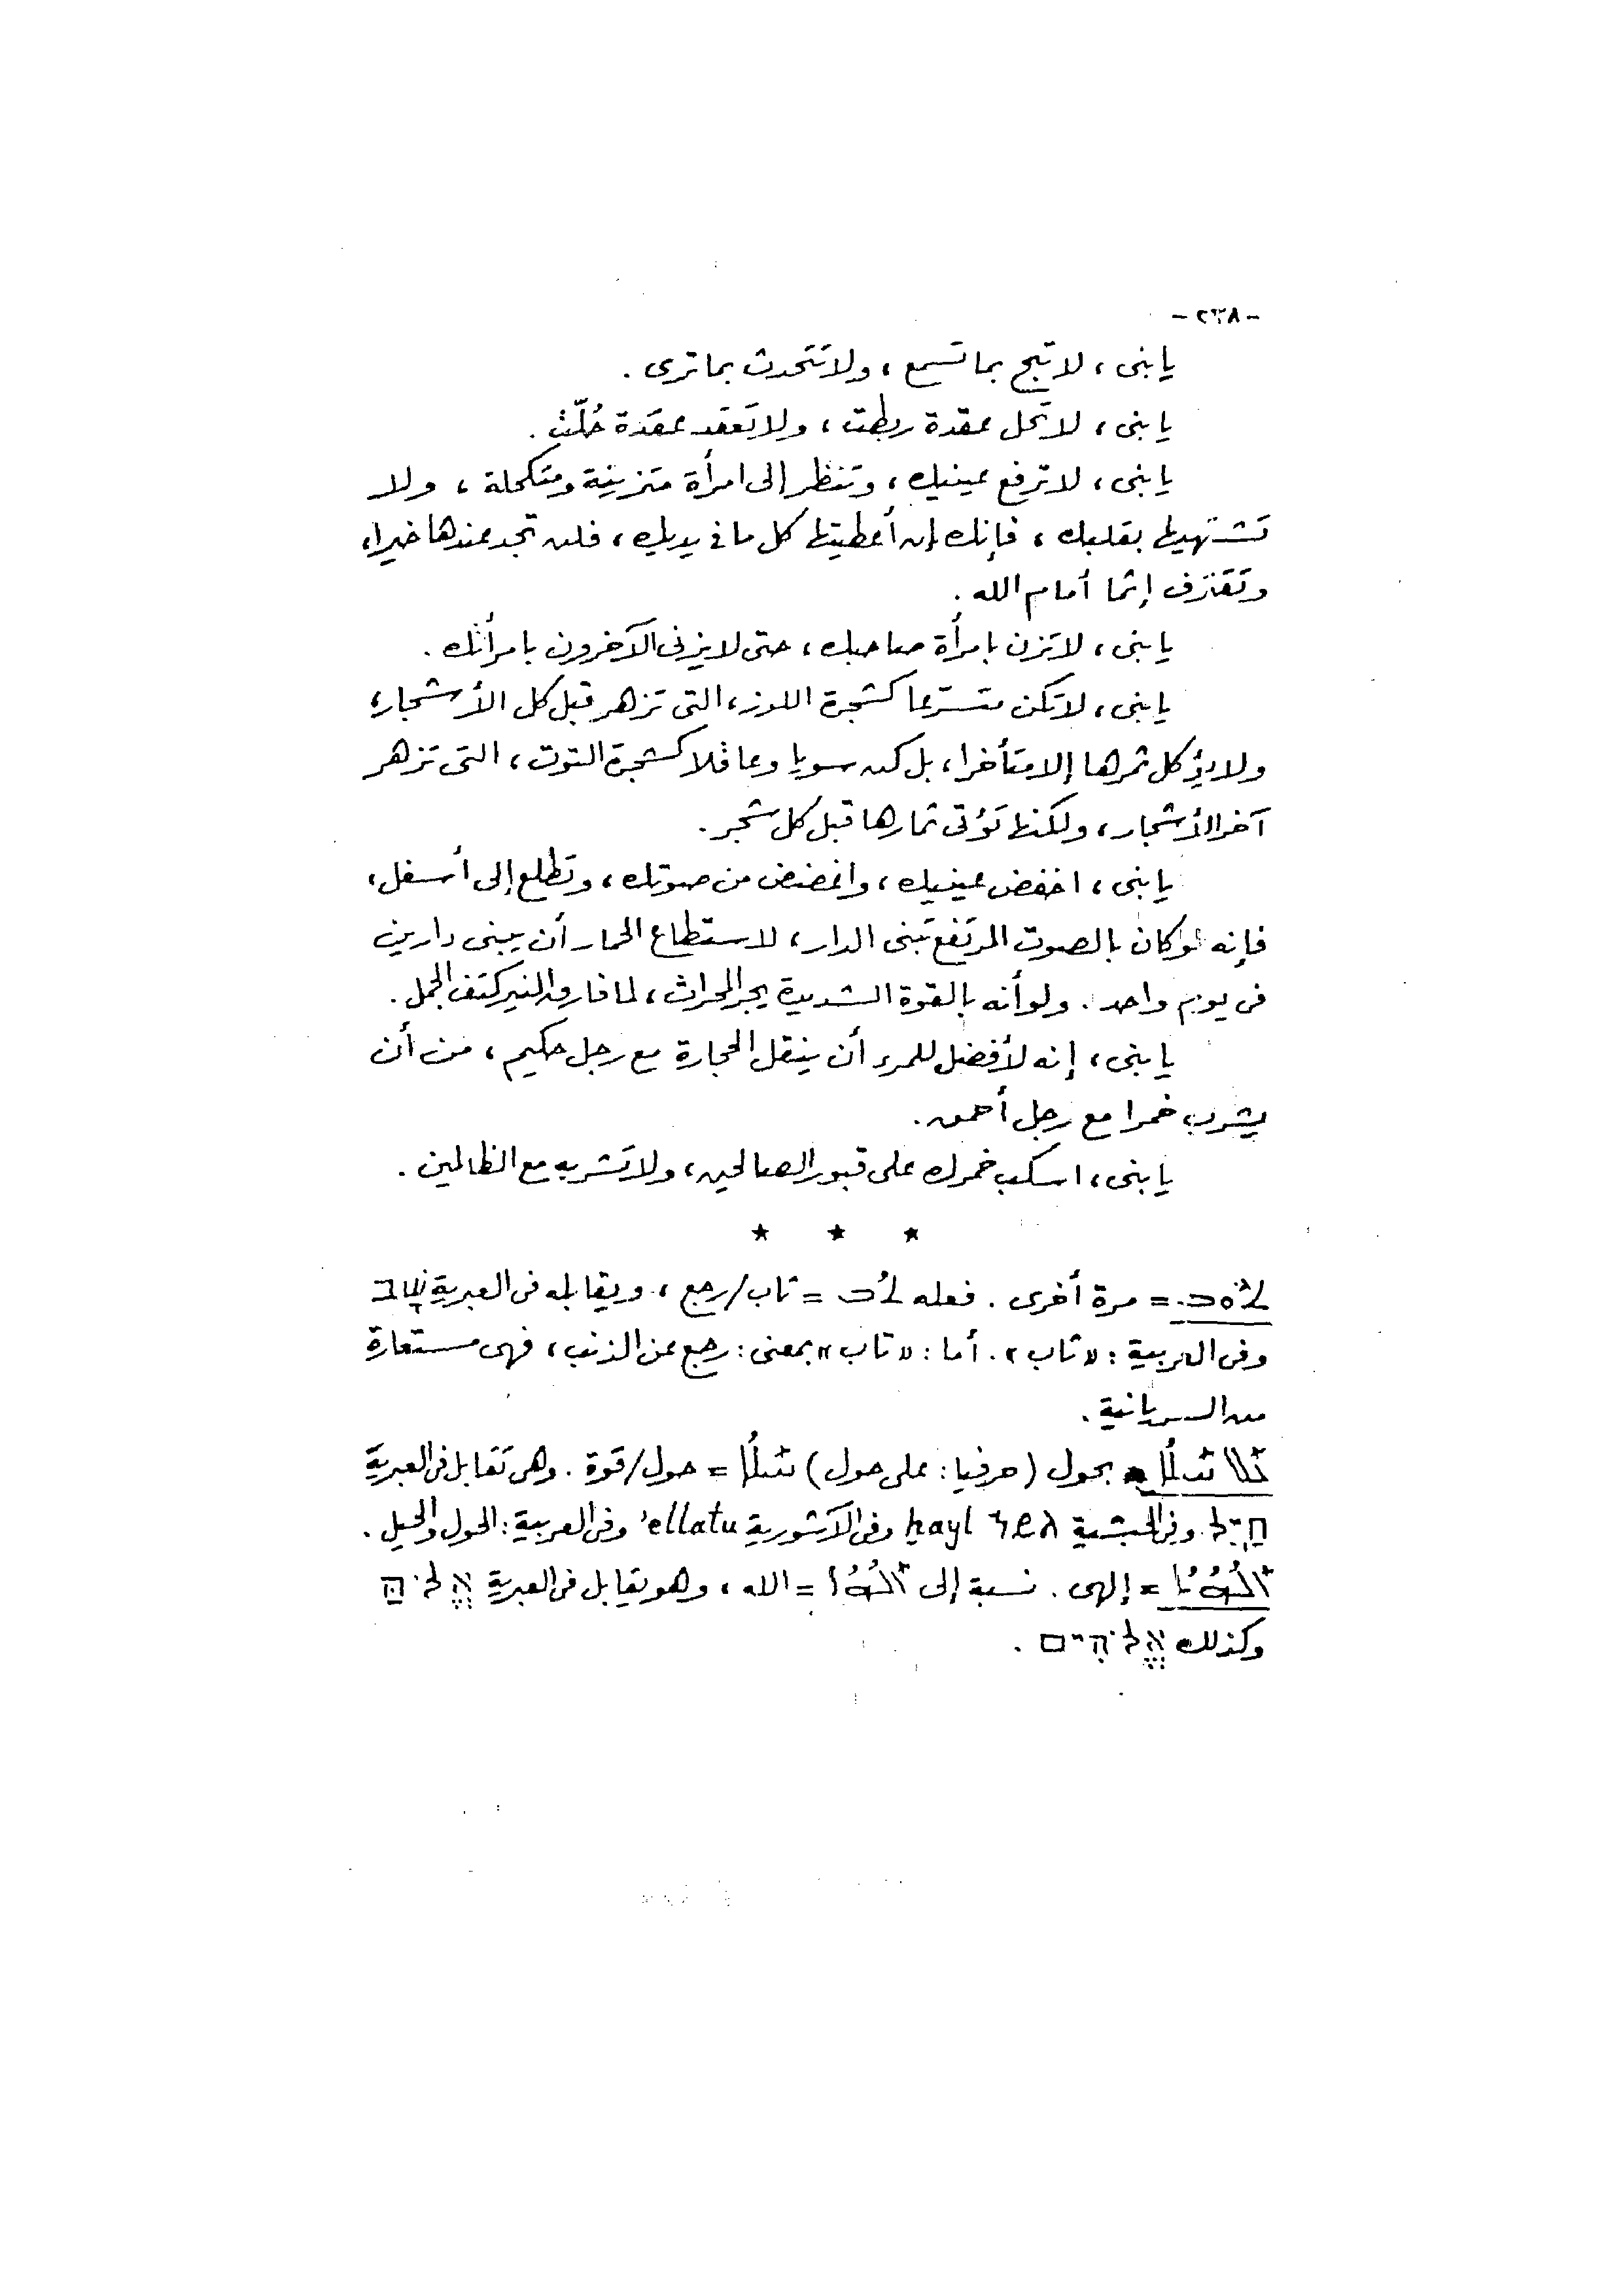 - ٢٣٨ -
يا بنى ، لا تبح بما تسمع ، ولا تتحدث بما ترى .
يا بنى ، لا تحل عقدة ربطت ، ولا تعقد عقدة حُلّت .
يا بنى ، لا ترفع عينيك ، وتنظر إلى امرأة متزينة ومتكحلة ، ولا
تشتهيها بقلبك ، فإنك إن أعطيتها كل ما فى يديك ، فلن تجد عندها خيرا ،
وتقترف إثما أمام الله .
يا بنى ، لا تزن بامرأة صاحبك ، حتى لا يزنى الآخرون بامرأتك .
يا بنى ، لا تكن متسرعا كشجرة اللوز ، التى تزهر قبل كل الأشجار ،
ولا يؤكل ثمرها إلا متأخرا ، بل كن سويا وعاقلا كشجرة التوت ، التى تزهر
آخر الأشجار ، ولكنها تؤتى ثمارها قبل كل شجر .
يا بنى ، اخفض عينيك ، واغضض من صوتك ، وتطلع إلى أسفل ،
فإنه لو كان بالصوت المرتفع تبنى الدار ، لاستطاع الحمار أن يبنى دارين
فى يوم واحد . ولو أنه بالقوة الشديدة يجر المحراث ، لما فارق النير كتف الجمل .
يا بنى ، إنه لأفضل للمرء أن ينقل الحجارة مع رجل حكيم ، من أن
يشرب خمرا مع رجل أحمق .
يا بنى ، اسكب خمرك على قبور الصالحين ، ولا تشربه مع الظالمين .
★ ★ ★
ܬܘܒ = مرة أخرى . فعله ܬܒ = تاب/رجع ، ويقابله فى العبرية שׁוּב
وفى العربية : « ثاب » . أما : « تاب » بمعنى : رجع عن الذنب ، فهى مستعارة
من السريانية .
ܥܠ ܚܝܠܐ بحول ( حرفيا : على حول ) ܚܝܠܐ = حول/قوة . وهى تقابل فى العبرية
חַיִל وفى الحبشية ኀይል ḫayl وفى الآشورية ellatu' وفى العربية : الحول والحيل .
ܐܠܗܝܐ = إلهى . نسبة إلى ܐܠܗܐ = الله ، وهو يقابل فى العبرية אֱלֹהַּ
وكذلك אֱלֹהִים .